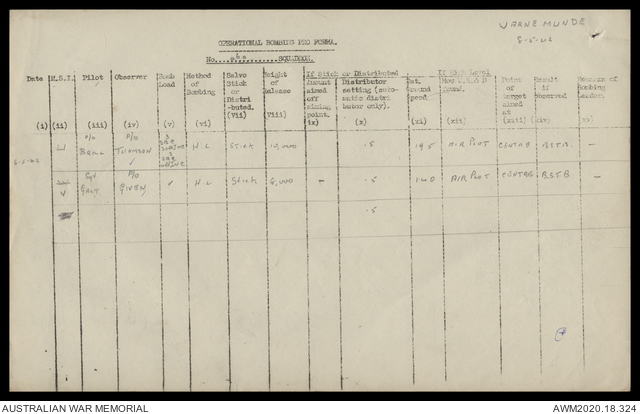 WARNEMUNDE
8-5-42
OPERATIONAL BOMBING PRO FORMA.
No. SQUADRON.
If Stick or Distributed
If High Level
Date M.S.I. Pilot Observer Bomb Load Method of Bombing Salvo Stick or Distri-buted. (vii) Height of Release viii) Amount aimed off aiming point. ix) Distributor setting (auto-matic distri butor only). (x) Ground speed (xi) found. (xii) Point of target aimed at (xiii) Result if Observed (xiv) Bombing Leader.
(i) (ii) (iii) (iv) (v) (vi)
P/O P/O
W THOMSON N.L STICK .5 195 AIR PLOT CENTRE B.S.T.B. —
8-5-42
Sgt P/O
V GALT GIVEN N.L Stick 6,000 — .5 140 AIR PLOT CENTRE B.S.T.B —
.5
AUSTRALIAN WAR MEMORIAL
AWM2020.18.324